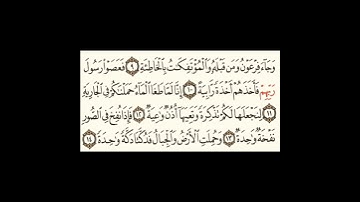 وَجَآءَ فِرْعَوْنُ وَمَن قَبْلَهُۥ وَٱلْمُؤْتَفِكَٰتُ بِٱلْخَاطِئَةِ ٩ فَعَصَوْا۟ رَسُولَ
رَبِّهِمْ فَأَخَذَهُمْ أَخْذَةً رَّابِيَةً ١٠ إِنَّا لَمَّا طَغَا ٱلْمَآءُ حَمَلْنَٰكُمْ فِى ٱلْجَارِيَةِ
١١ لِنَجْعَلَهَا لَكُمْ تَذْكِرَةً وَتَعِيَهَآ أُذُنٌ وَٰعِيَةٌ ١٢ فَإِذَا نُفِخَ فِى ٱلصُّورِ
نَفْخَةٌ وَٰحِدَةٌ ١٣ وَحُمِلَتِ ٱلْأَرْضُ وَٱلْجِبَالُ فَدُكَّتَا دَكَّةً وَٰحِدَةً ١٤